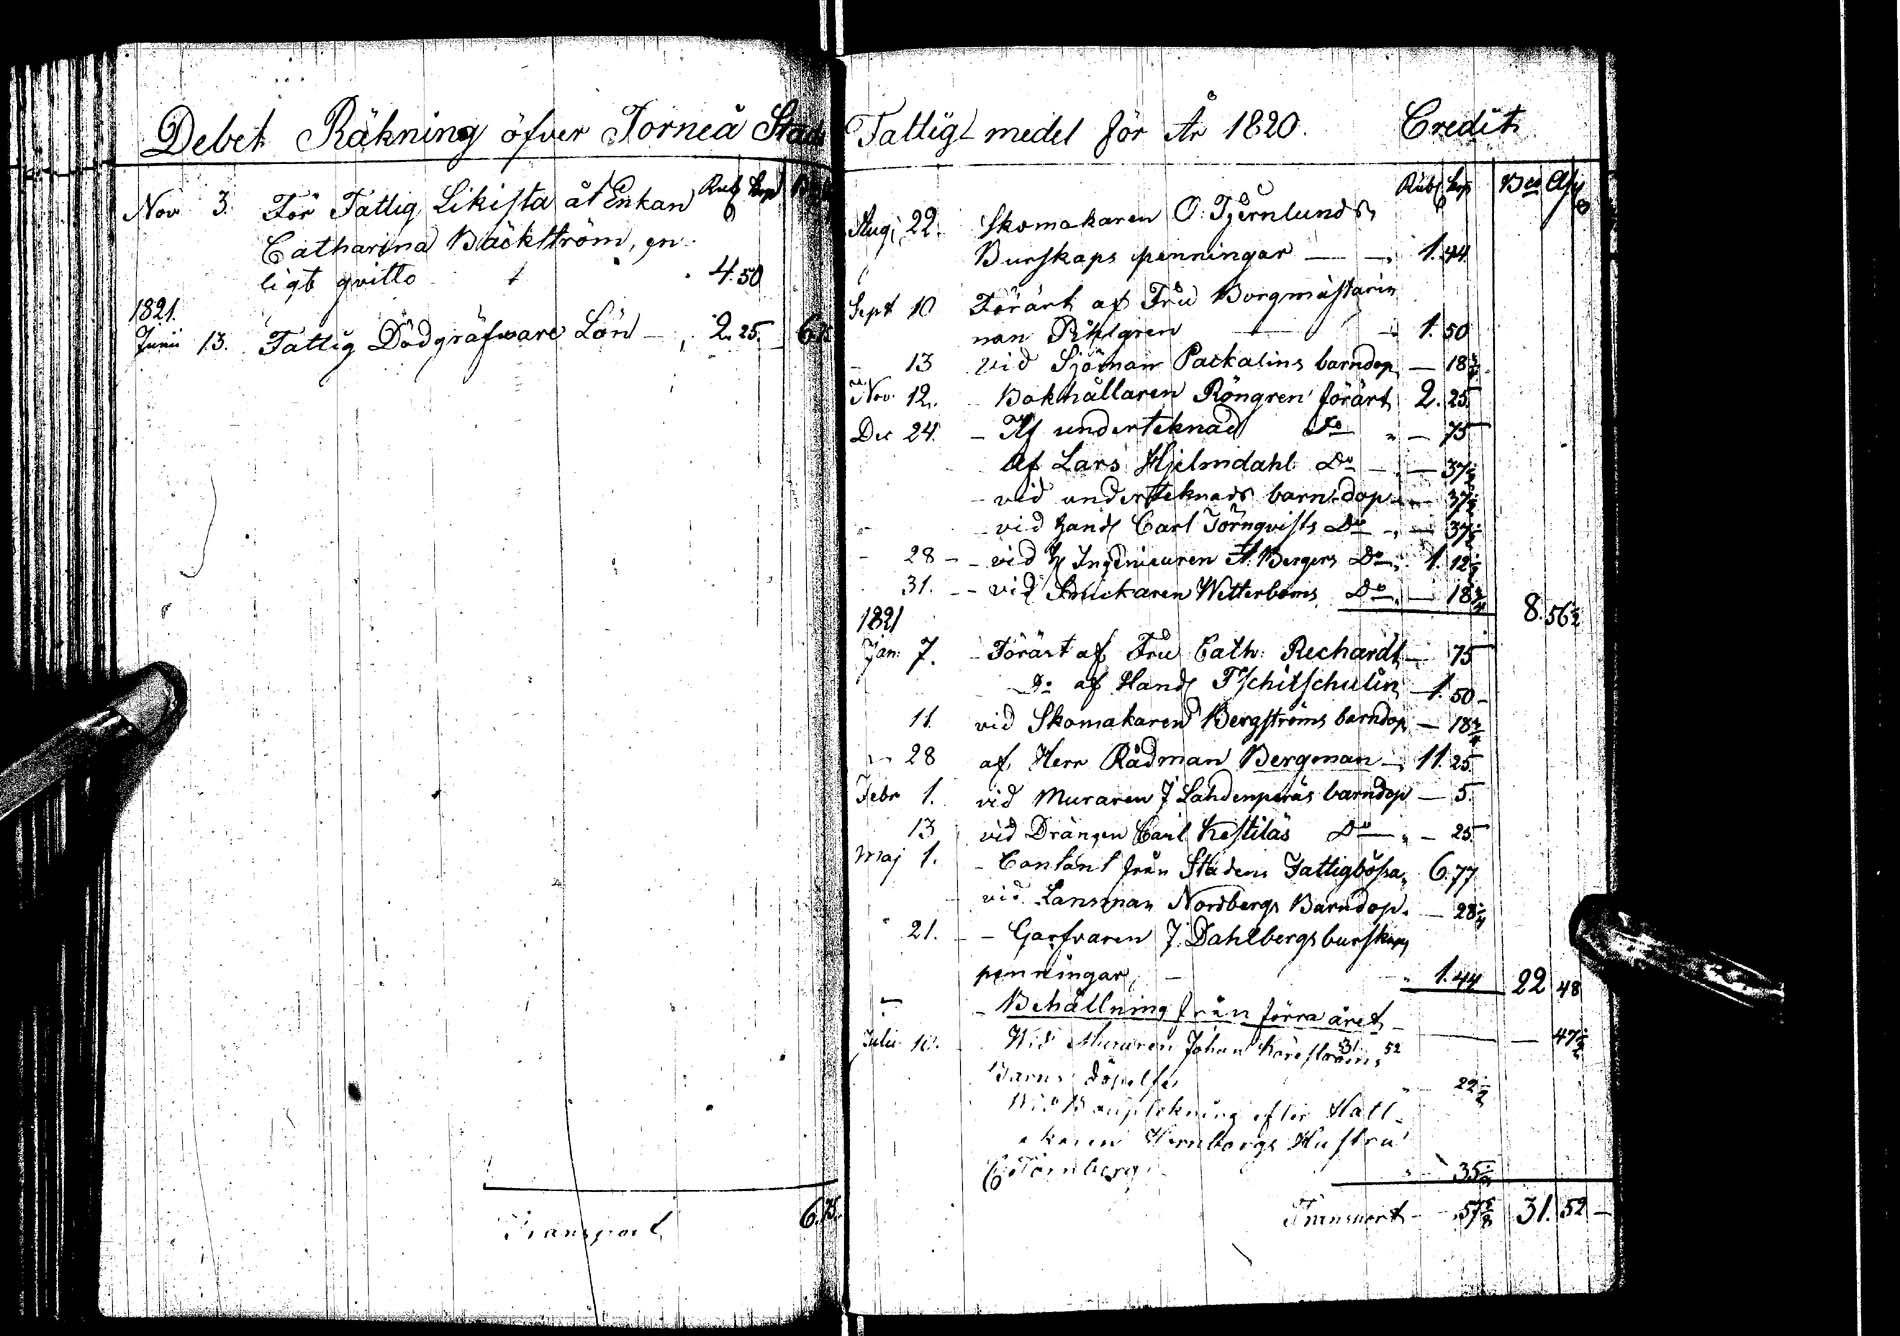 Debet Räkning öfver Torneå Stads
Rub Kop
Nov 3. För Fattig Likista åt Enkan
Catharina Bäckström, en-
ligt qvitto 4.50
1821.
Junii 13. Fattig Dödgräfware Lön 2.25. 6.75
Transport 6.75.
Fattig-medel för År 1820. Credit
Rub Kop Bco
Aug 22. Skomakaren O. Tjernlunds
Burskaps penningar 1.44
Sept 10 Förärt af Fru Borgmästarin
nan Pihlgren 1.50
13 vid Sjöman Packalins barndop 18¾
Nov. 12. Bokhållaren Röngren förärt 2.25
Dec 24. Af underteknad Do 75
Af Lars Hjelmdahl Do 37½
vid undertteknads barndop 37½
vid Hand Carl Törnqvists Do 37½
28 vid H Ingenieuren A. Bergers Do 1.12½
31. vid Snickaren Wetterboms Do 18¾ 8.56½
1821
Jan: 7. Förärt af Fru Cath: Rechardt 75
Do af Hand Tschitschulin 1.50
11. vid Skomakaren Bergströms barndop 18¾
28 af Herr Rådman Bergman 11.25
Febr 1. vid Muraren J Lahdenperäs barndop 5.
13 vid Drängen Carl Kestiläs Do 25
Maj 1. Contant från Stadens Fattigbössa 6.77
vid Lansman Nordbergs Barndop. 28¼
21. Garfvaren J. Dahlbergs burskaps
penningar 1.44 22 48
Behållning från förra året 47½
31 52
Julii 10. Wid Muraren Johan
Barns döpelse 22½
efter Hatt-
makaren Hustru
35
Transport 57⅝ 31.52